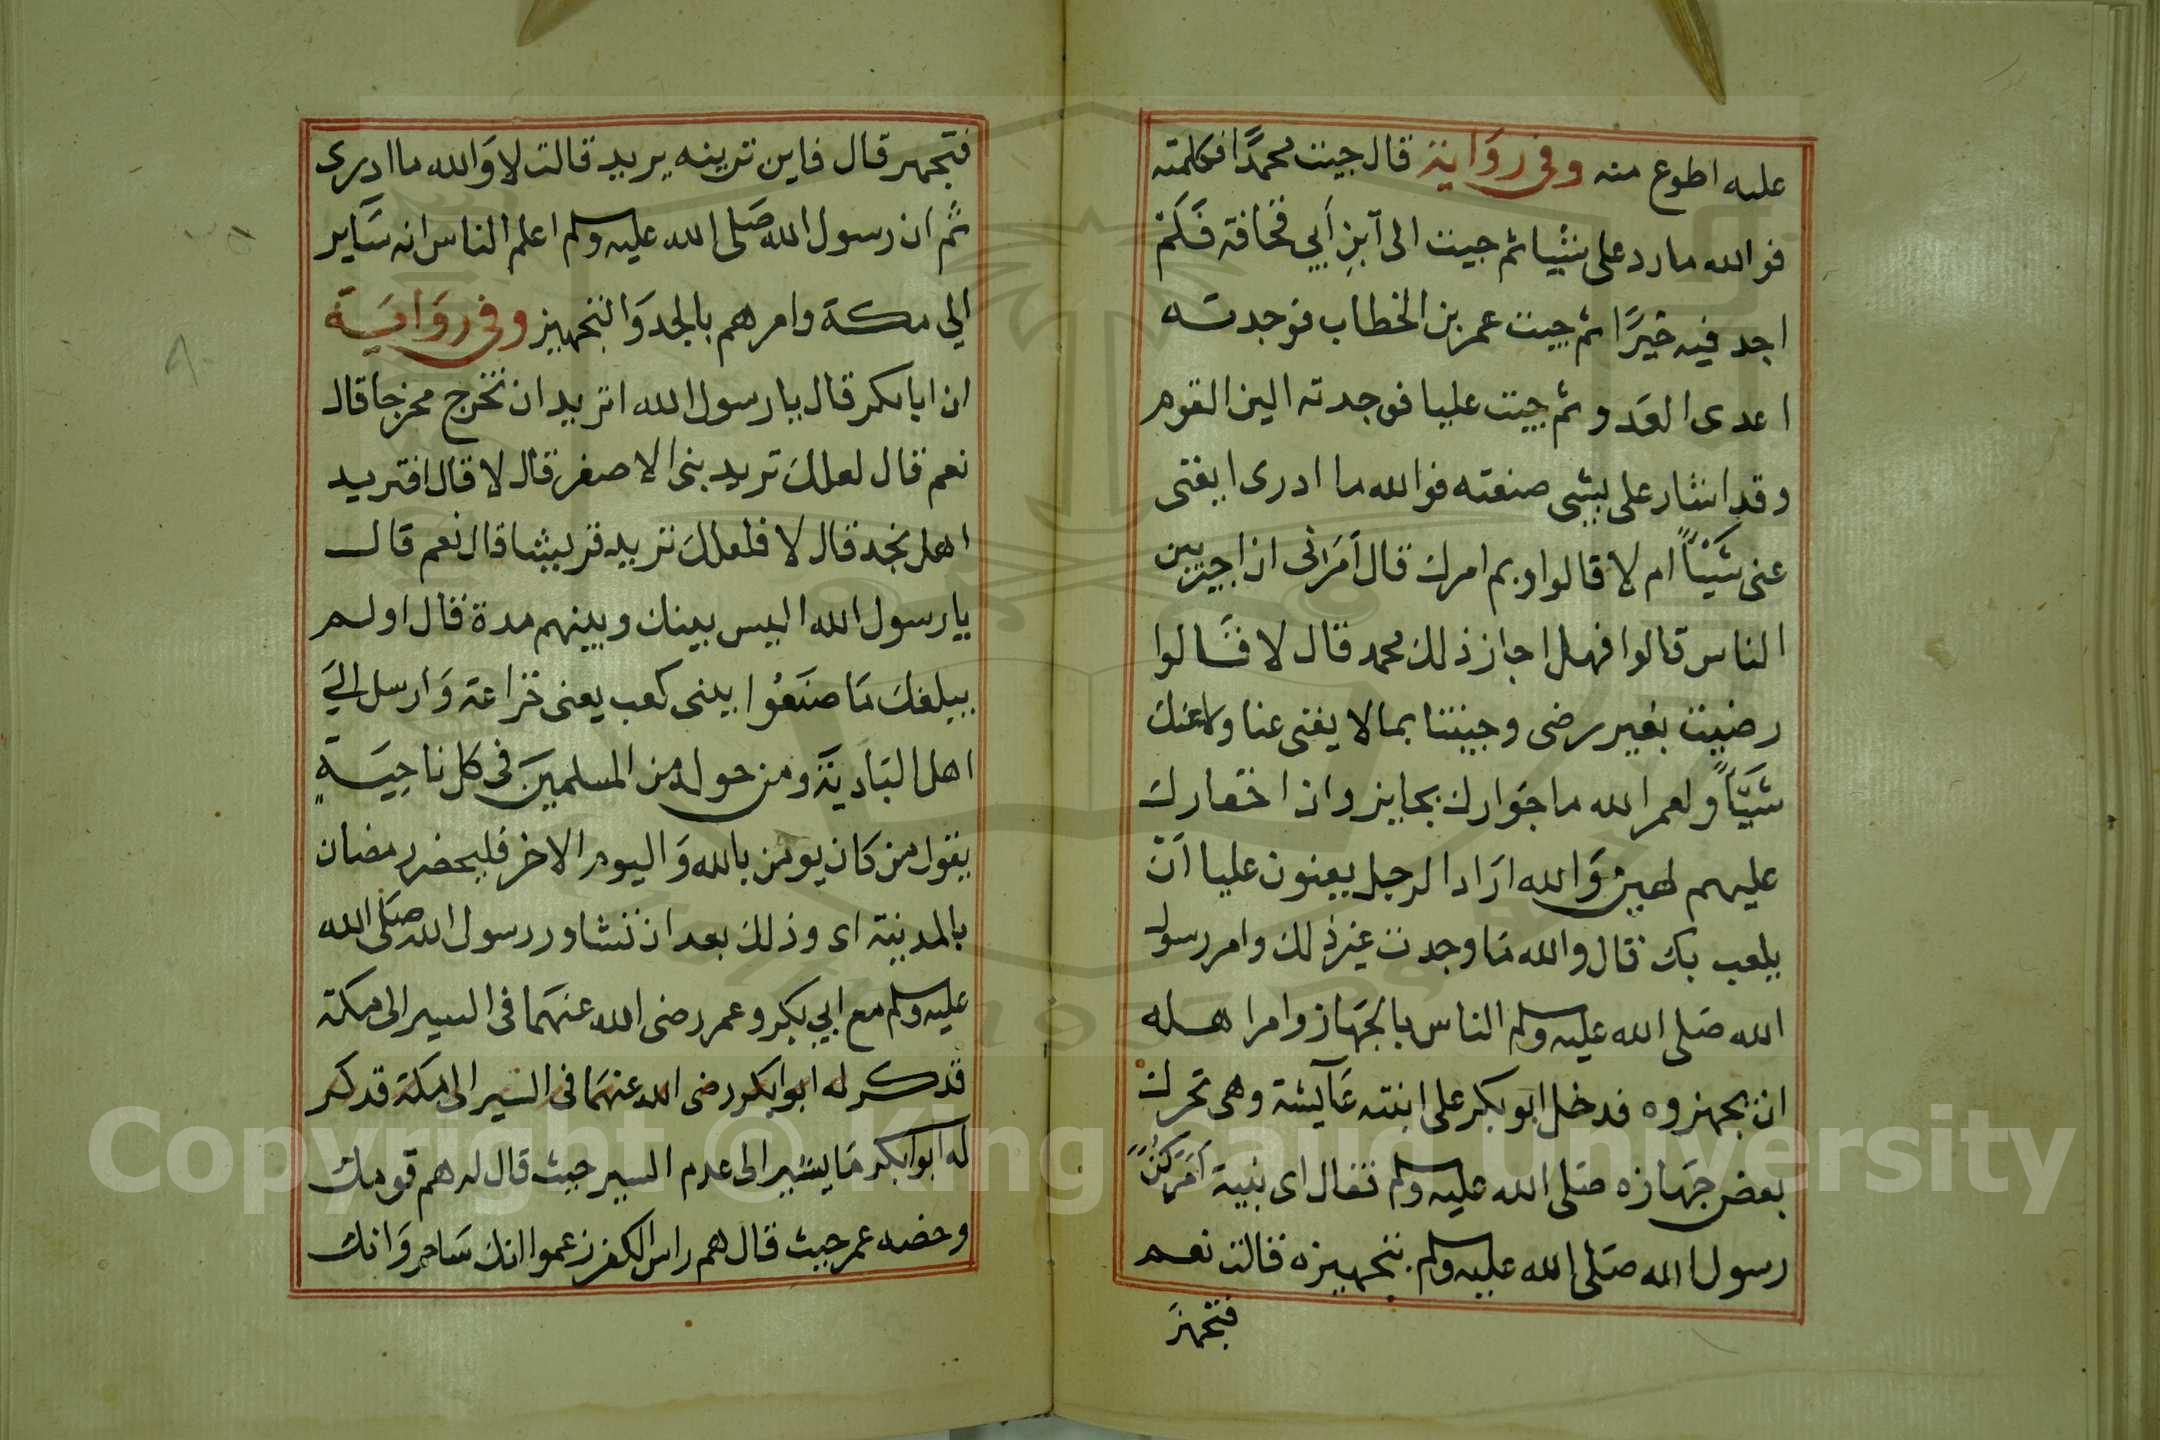 عليه اطوع منه وفي رواية قال جيت محمدًا فكلمته
فوالله مارد على شيا ثم جيت الى ابن أبي قحافة فَلَمْ
اجد فيه خيرًا ثم جيت عمر بن الخطاب فوجدته
اعدى العدو ثم جيت عليا فوجدته الين القوم
وقد اشار على بشى صنعته فوالله ما ادرى ايغنى
عنى شَيْئًا ام لا قالوا وبم امرك قال أمَرَنى ان اجير بين
الناس قالوا فهل اجاز ذلك محمد قال لا قالوا
رضيت بغير رضى وجيتنا بما لا يغنى عنا ولا عنك
شَيْئًا ولعمر الله ما جوارك بجايز وان اخفارك
عليهم لهين وَالله ارَاد الرجل يعنون عليا أنْ
يلعب بك قال والله مَا وجدت غير ذلك وامر رسول
الله صَلى الله عليه وسلم الناس بالجهَاز وامر اهله
ان يجهزوه فدخل ابو بكر على ابنته عَآيشة وهى تحرك
بعض جهَازه صَلى الله عليه وسلم فقال اى بنية أَمَرَكُنَّ
رسول الله صَلى الله عليه وسلم بتجهيزه قالت نعم
فتجهز
فتجهز قال فاين ترينه يريد قالت لا وَالله ما ادرى
ثُم ان رسول الله صَلى الله عليه وسلم اعلم الناس انه سَاير
الي مكة وامرهم بالجد وَالتجهيز وفي رواية
ان ابا بكر قال يا رسول الله اتريد ان تخرج مخرجا قال
نعم قال لعلك تريد بنى الاصفر قال لا قال افتريد
اهل نجد قال لا فلعلك تريد قريشا قال نعم قال
يا رسول الله اليس بينك وبينهم مدة قال اولم
يبلغك مَا صنَعُوا ببنى كعب يعنى خزاعة وَارسل اليَ
اهل البَادية ومن حوله من المسلمينَ فى كل ناحِيَةٍ
يقول من كان يومن بالله وَاليوم الاخر فليحضر رمضان
بالمدينة اى وذلك بعد ان تشاور رسول الله صَلى الله
عليه وسلم مع ابي بكر وعمر رضى الله عنهمَا فى السير الى مكة
قد كر له ابو ابكر رضى الله عنهمَا فى السير الى مكة قد كر
له ابوا بكر مَا يشير الى عدم السير حيث قال له هم قومك
وحضه عمر حيث قال هم راس الكفر زعموا انك سَاحر وَانك